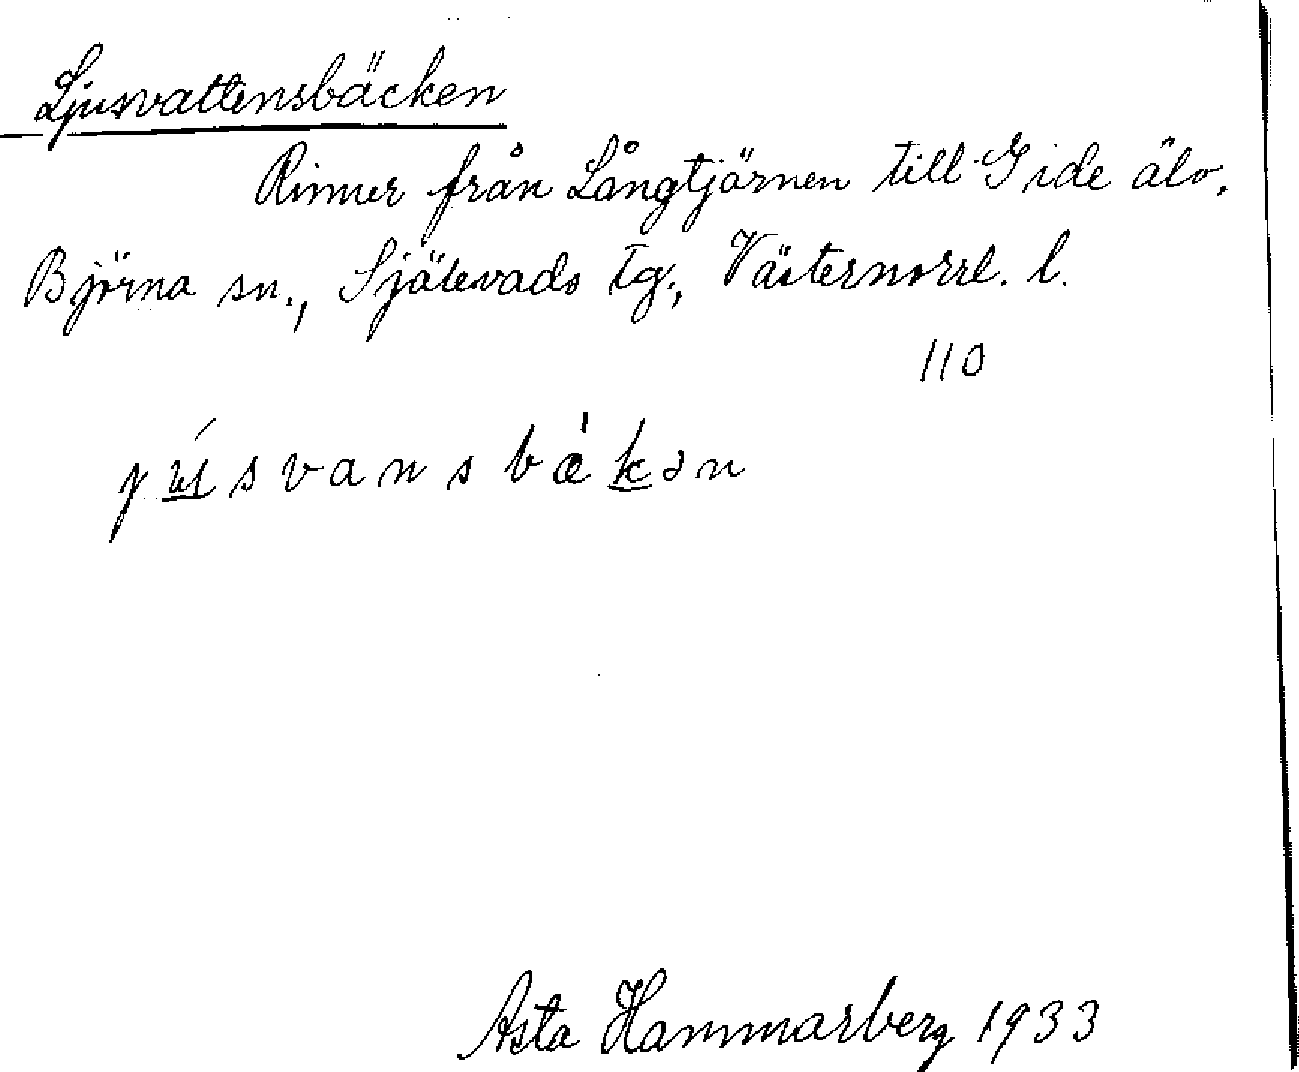 Ljusvattensbäcken
Rinner från Långtjärnen till Gide älv.
Björna sn., Själevads tg., Västernorrl. l.
110
jʉ́svansbǽkən
Asta Hammarberg 1933